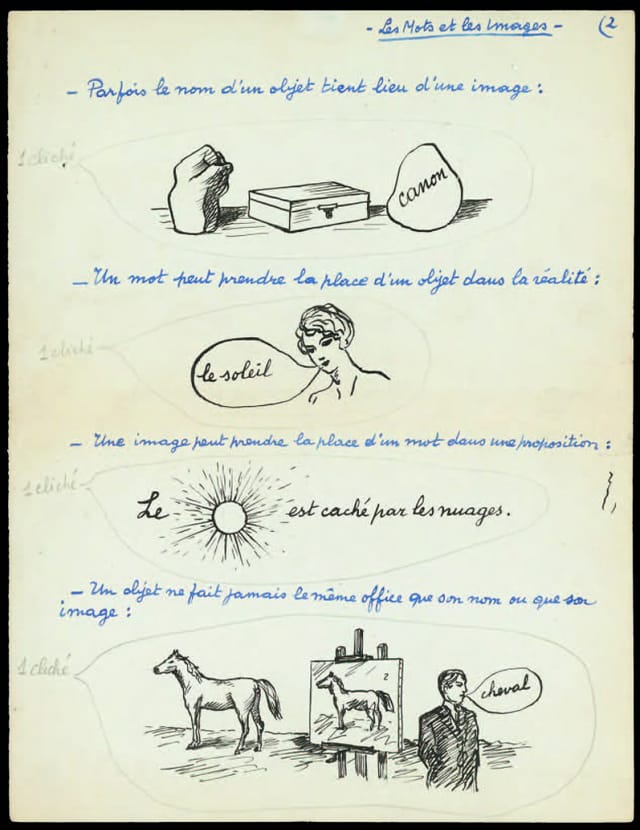 - Les Mots et les Images - (2
- Parfois le nom d'un objet tient lieu d'une image :
1 cliché
canon
- Un mot peut prendre la place d'un objet dans la réalité :
1 cliché
le soleil
- Une image peut prendre la place d'un mot dans une proposition :
1 cliché
Le est caché par les nuages.
- Un objet ne fait jamais le même office que son nom ou que son
image :
1 cliché
2
cheval